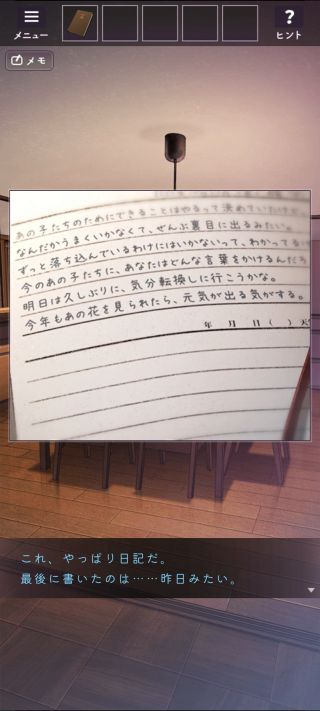 メニュー
ヒント
メモ
あの子たちのためにできることはやるって決めていたけど
なんだかうまくいかなくて、ぜんぶ裏目に出るみたい。
ずっと落ち込んでいるわけにはいかないって、わかってる
今のあの子たちに、あなたはどんな言葉をかけるんだろ
明日は久しぶりに、気分転換しに行こうかな。
今年もあの花を見られたら、元気が出る気がする。
年 月 日 ( ) 天
これ、やっぱり日記だ。
最後に書いたのは……昨日みたい。